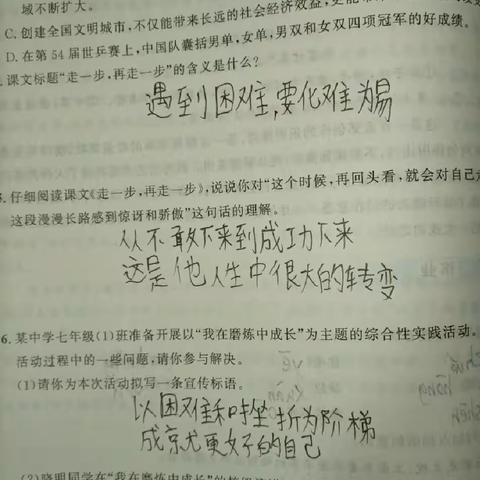 域不断扩大。
C. 创建全国文明城市,不仅能带来长远的社会经济效益,更能
D. 在第 54 届世乒赛上,中国队囊括男单,女单,男双和女双四项冠军的好成绩。
课文标题“走一步,再走一步”的含义是什么?
遇到困难,要化难为易
仔细阅读课文《走一步,再走一步》,说说你对“这个时候,再回头看,就会对自己
这段漫漫长路感到惊讶和骄傲”这句话的理解。
从不敢下来到成功下来
这是他人生中很大的转变
6. 某中学七年级(1)班准备开展以“我在磨炼中成长”为主题的综合性实践活动。
活动过程中的一些问题,请你参与解决。
(1)请你为本次活动拟写一条宣传标语。
以困难和挫折为阶梯
成就更好的自己
(2)晓明同学在“我在磨炼中成长”的